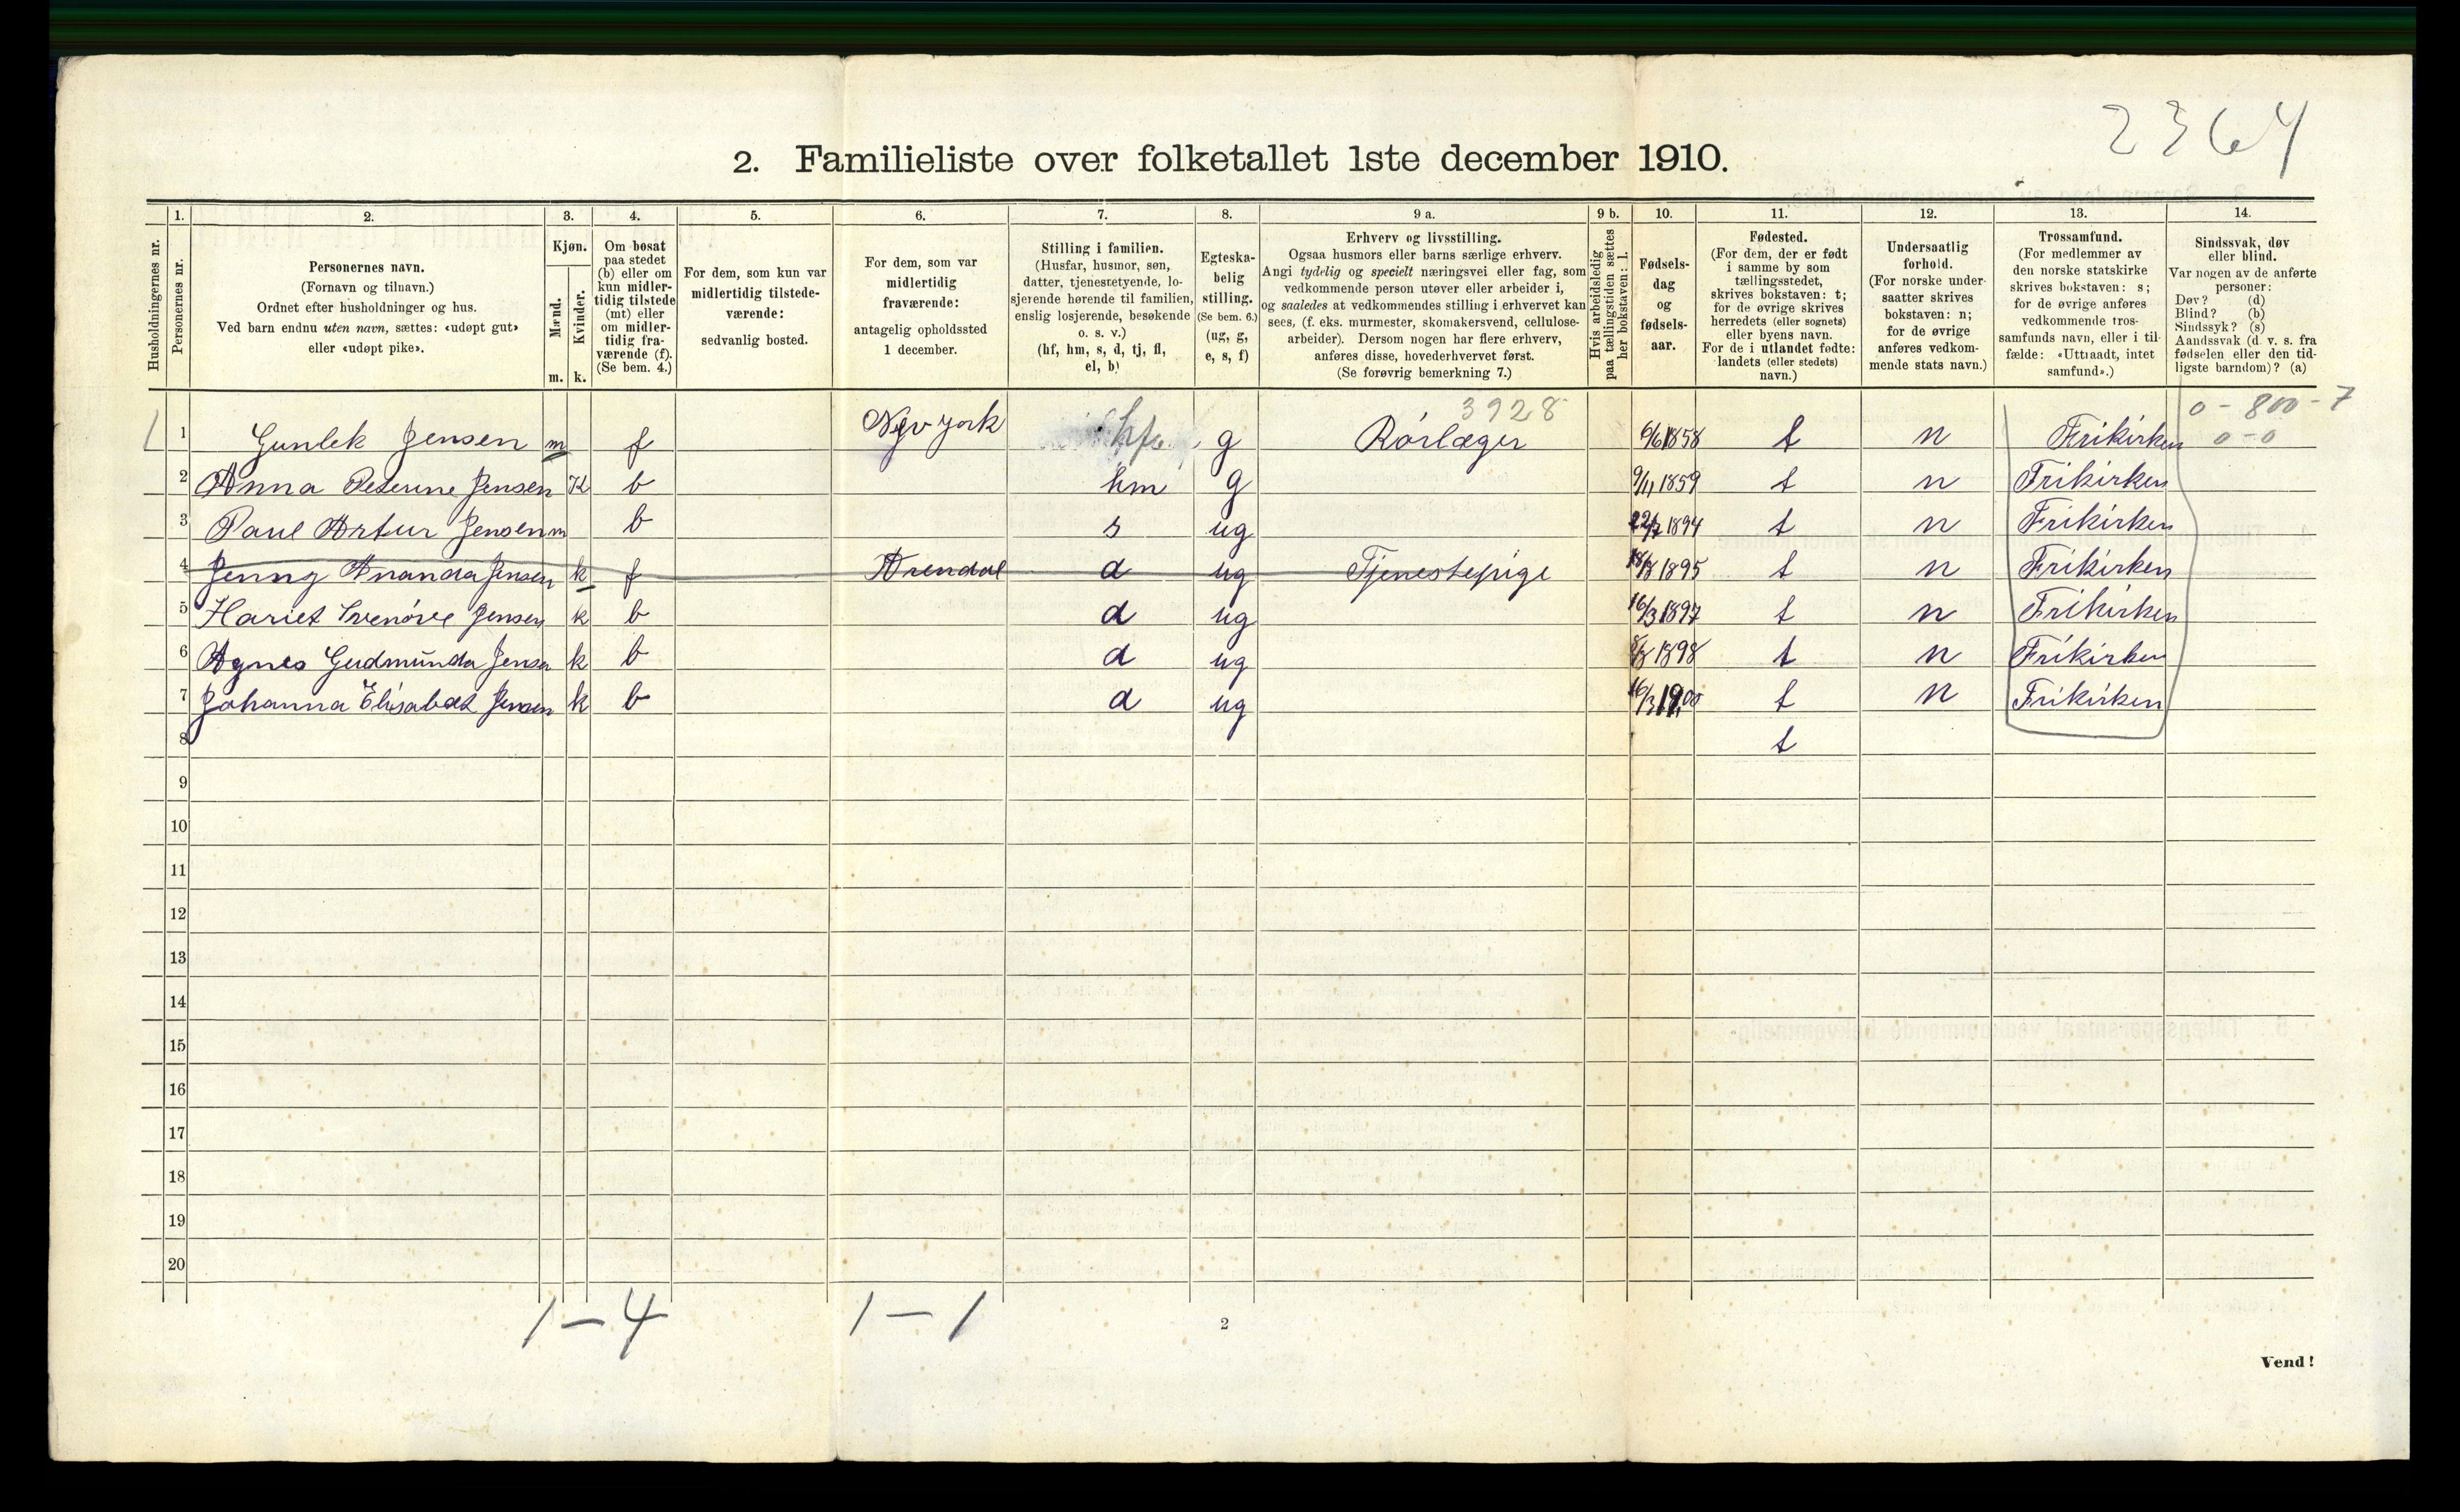 2364
2. Familieliste over folketallet 1ste december 1910.
Husholdningernes nr.
1. Personernes nr.
2. Personernes navn. (Fornavn og tilnavn.) Ordnet efter husholdninger og hus. Ved barn endnu uten navn, sættes: «udøpt gut» eller «udøpt pike».
3. Kjøn. Mænd. m. Kvinder. k.
4. Om bosat paa stedet (b) eller om kun midlertidig tilstede (mt) eller om midlertidig fraværende (f). (Se bem. 4.)
5. For dem, som kun var midlertidig tilstedeværende: sedvanlig bosted.
6. For dem, som var midlertidig fraværende: antagelig opholdssted 1 december.
7. Stilling i familien. (Husfar, husmor, søn, datter, tjenestetyende, losjerende hørende til familien, enslig losjerende, besøkende o. s. v.) (hf, hm, s, d, tj, fl, el, b)
8. Egteskabelig stilling. (Se bem. 6.) (ug, g, e, s, f)
9 a. Erhverv og livsstilling. Ogsaa husmors eller barns særlige erhverv. Angi tydelig og specielt næringsvei eller fag, som vedkommende person utøver eller arbeider i, og saaledes at vedkommendes stilling i erhvervet kan sees, (f. eks. murmester, skomakersvend, cellulosearbeider). Dersom nogen har flere erhverv, anføres disse, hovederhvervet først. (Se forøvrig bemerkning 7.)
9 b. Hvis arbeidsledig paa tællingstiden sættes her bokstaven: l.
10. Fødselsdag og fødselsaar.
11. Fødested. (For dem, der er født i samme by som tællingsstedet, skrives bokstaven: t; for de øvrige skrives herredets (eller sognets) eller byens navn. For de i utlandet fødte: landets (eller stedets) navn.)
12. Undersaatlig forhold. (For norske undersaatter skrives bokstaven: n; for de øvrige anføres vedkommende stats navn.)
13. Trossamfund. (For medlemmer av den norske statskirke skrives bokstaven: s; for de øvrige anføres vedkommende trossamfunds navn, eller i tilfælde: «Uttraadt, intet samfund».)
14. Sindssvak, døv eller blind. Var nogen av de anførte personer: Døv? (d) Blind? (b) Sindssyk? (s) Aandssvak (d. v. s. fra fødselen eller den tidligste barndom)? (a)
3928 0-800-7
1 1 Gunlek Jensen m f New york hf g Rørlæger 6/6 1858 t n Frikirken 0-0
2 Anna Peterine Jensen K b hm g 9/11 1859 t n Frikirken
3 Paul Artur Jensen m b s ug 22/7 1894 t n Frikirken
4 Jenny Ananda Jensen k f Arendal d ug Tjenestepige 18/8 1895 t n Frikirken
5 Hariet Jensen k b d ug 16/3 1897 t n Frikirken
6 Agnes Gudmunda Jensen k b d ug 1898 t n Frikirken
7 Johanna Elisabet Jensen k b d ug 16/3 1900 t n Frikirken
8 t
9
10
11
12
13
14
15
16
17
18
19
20
1-4 1-1
2
Vend!